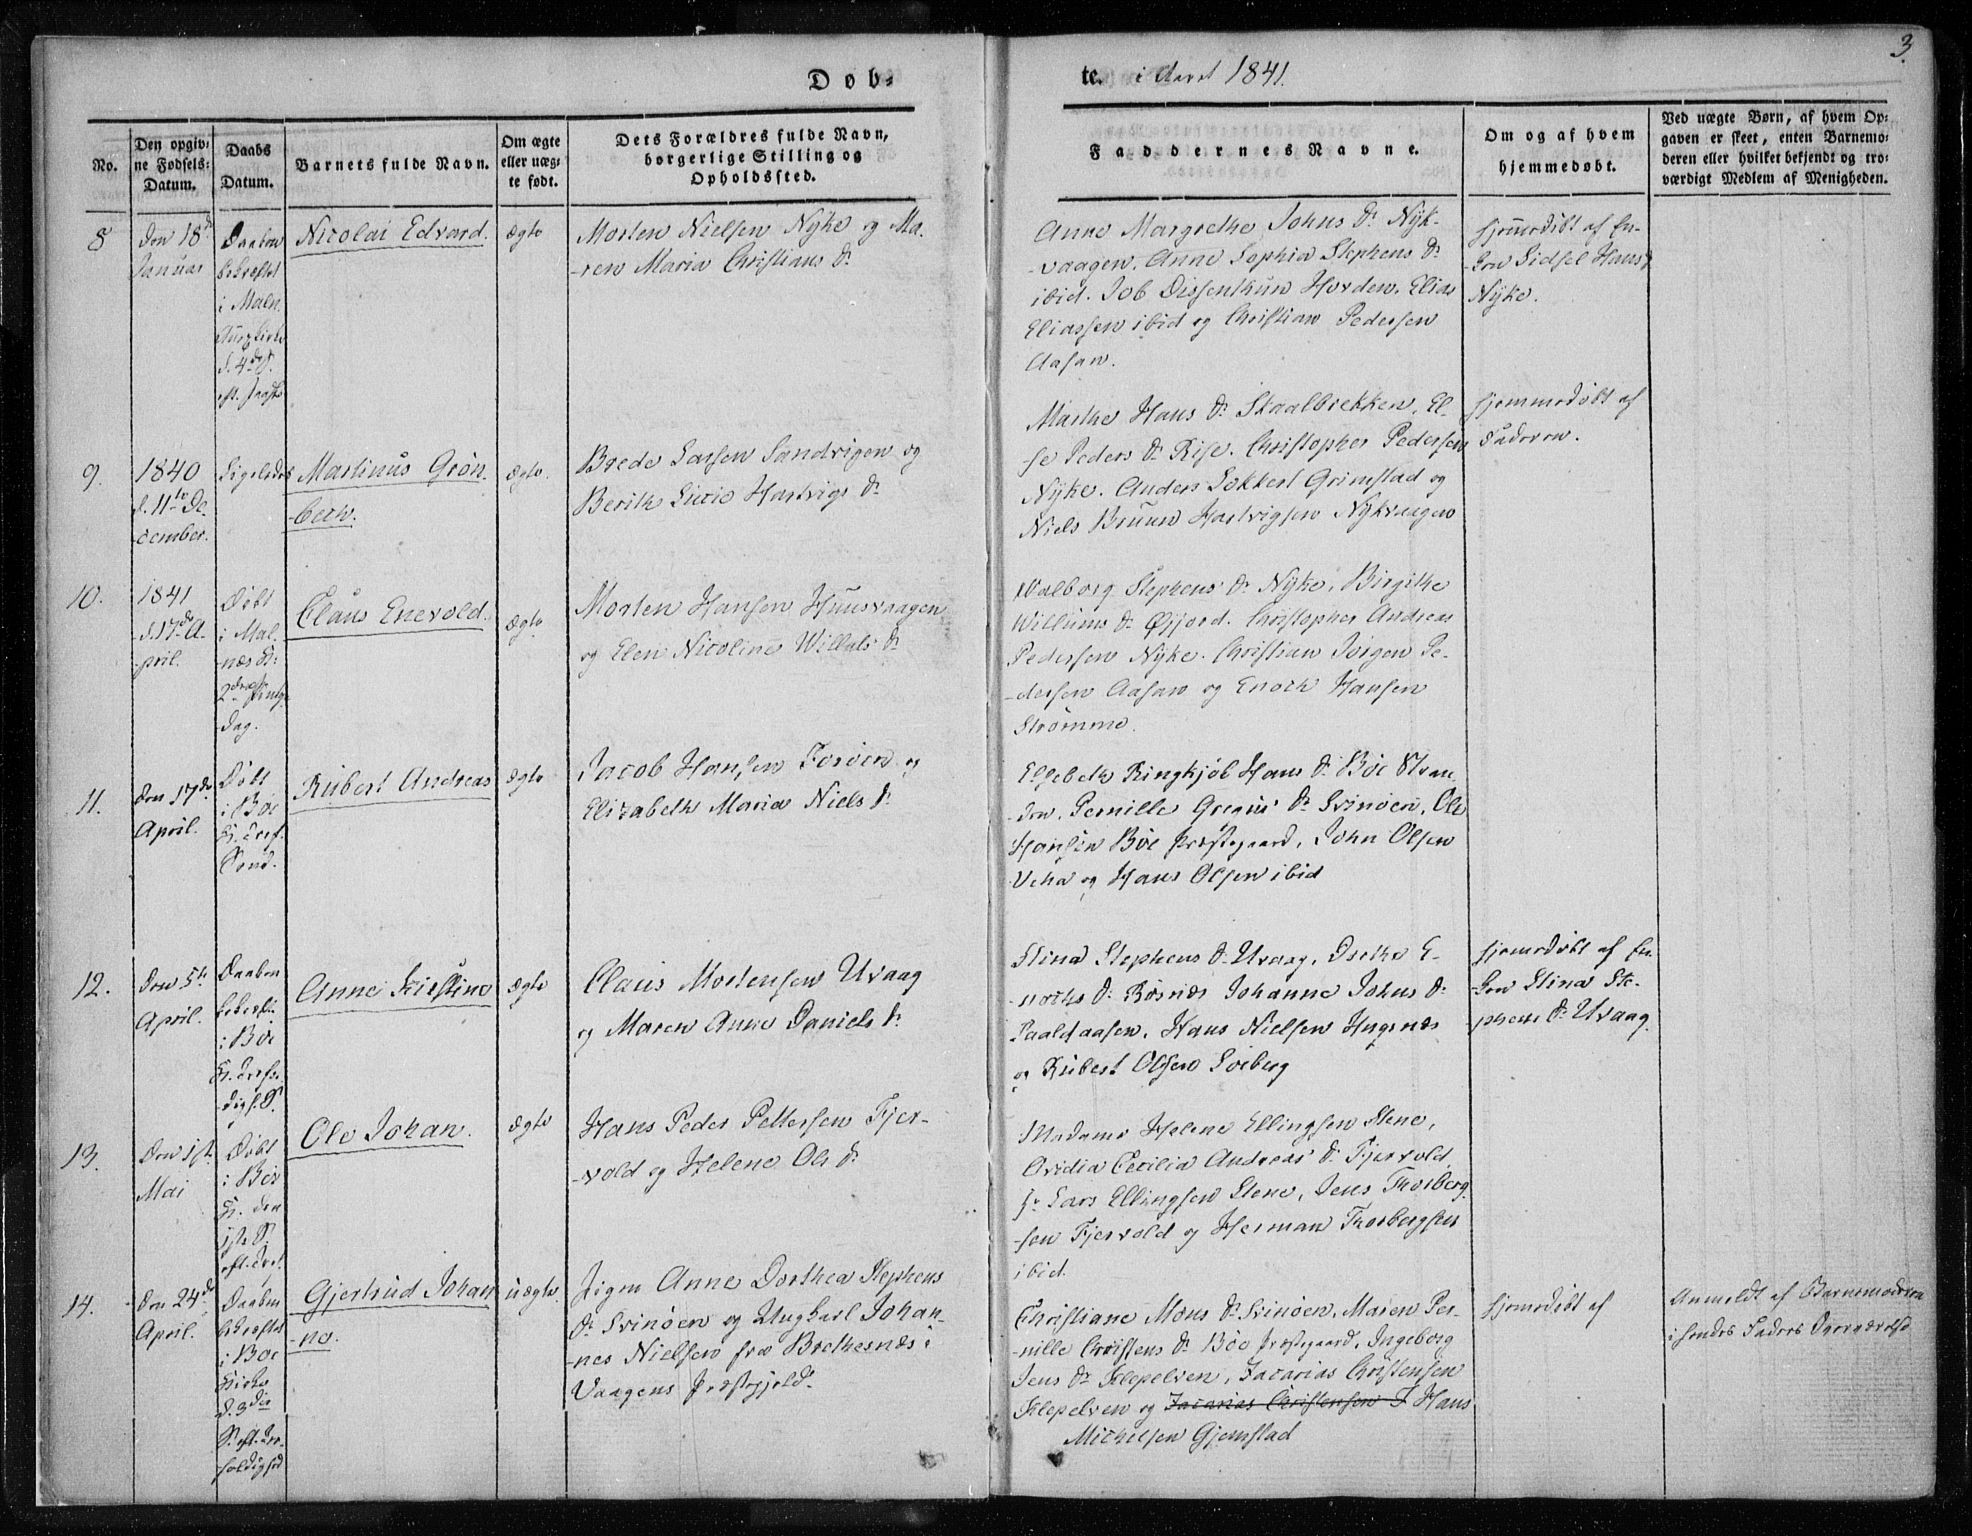 Døb-
te. i Aaret 1841.
3.
No.
Den opgiv-
ne Fødsels-
Datum.
Daabs
Datum.
Barnets fulde Navn.
Om ægte
eller uæg-
te født.
Dets Forældres fulde Navn,
borgerlige Stilling og
Opholdssted.
Faddernes Navne.
Om og af hvem
hjemmedøbt.
Ved uægte Børn, af hvem Op-
gaven er skeet, enten Barnemo-
deren eller hvilket bekjendt og tro-
værdigt Medlem af Menigheden.
8
den 18de
Januar
Daaben
bekræftet
i Maln.
d. 4de S.
Nicolai Edvard.
ægte
Morten Nielsen Nÿke og Ma-
-ren Maria Christians Dr
Anne Margrethe Johns Dr Nÿk-
-vaagen. Anne Sophia Stephens Dr
ibid. Job Dissenthun Horden. Elias
Eliassen ibid og Christian Pedersen
Aasan.
hjemmedøbt af En-
-ken Sidsel Hans Dr
Nÿke.
9.
1840
d. 11te De-
cember.
Ligeledes
Martinus Grøn-
-bech.
ægte.
Brede Larsen Sandvigen og
Berith Lucie Hartvigs Dr
Marthe Hans Dr Skaalbrekken, El-
se Peders Dr Rise. Christopher Pedersen
Nÿke. Anders Lokkert Grimstad og
Niels Bruun Hartvigsen Nÿkvaagen
hjemmedøbt af
Faderen.
10.
1841
d. 17de A-
-pril.
Døbt
i Mal-
-næs K:
2den Pints-
dag.
Claus Enevold.
ægte
Morten Hansen Huusvaagen
og Elen Nicoline Willads Dr
Walborg Stephens Dr Nÿke, Birgithe
Willums Dr Øfjord. Christopher Andreas
Pedersen Nÿke. Christian Jørgen Pe-
-dersen Aasan og Enoch Hansen
Strømme.
11.
den 17de
April.
Døbt
i Bøe
K. Tref.
Sønd.
Rubert Andreas
ægte
Jacob Hansen Forøen og
Elizabeth Maria Niels Dr
Elsebeth Ringkjøb Hans Dr Bøe Stran-
-den. Pernille Gregus Dr Svinøen, Ole
Hansen Bøe Præstegaard, John Olsen
Veha og Hans Olsen ibid
12.
den 5te
April.
Daaben
bekræft.
i Bøe
K. Trefol-
digh. S.
Anne Kirstine
ægte
Claus Mortensen Uvaag
og Maren Anne Daniels Dr
Stina Stephens Dr Uvaag, Dorthe E-
-nochs Dr Røsnæs Johanne Johns Dr
Paaldaasen, Hans Nielsen Hugenæs
og Rubert Olsen Søiberg
hjemmedøbt af En-
-ken Stina Ste-
phens Dr Uvaag.
13.
den 1ste
Mai
Døbt
i Bøe
K. den
1ste S.
eft. Tref.
Ole Johan.
ægte
Hans Peder Pettersen Fjær-
-vold og Helene Ols Dr
Madame Helene Ellingsen Stene,
Ovidia Cecilia Andreas Dr Fjærvold
Hr. Lars Ellingsen Stene, Jens Thorberg-
-sen Fjærvold og Herman Thorbergsen
ibid.
14.
den 24de
April.
Daaben
bekræftet
i Bøe
Kirke
d. 3die
S. eft. Tre-
-foldighed
Gjertrud Johan-
-na.
uægte.
Pigen Anne Dorthea Stephens
Dr Svinøen og Ungkarl Johan-
-nes Nielsen fra Brettesnæs i
Vaagens Præstegjeld.
Christiane Mons Dr Svinøen, Maren Per-
-nille Christens Dr Bøe Præstegaard, Ingeborg
Jens Dr Klepelven, Zacarias Christensen
Klepelven og Zacarias Christensen F Hans
Michelsen Gjemstad
hjemmedøbt af
Anmeldt af Barnemoderen
i hendes Faders Overværelse